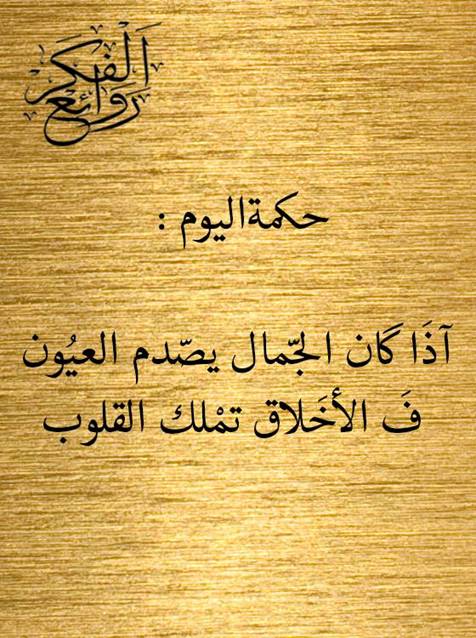 روائع الفكر
حكمةاليوم :
آذَا گان الجّمال يصّدم العيُون
فَ الأخَلاق تمْلك القلوب